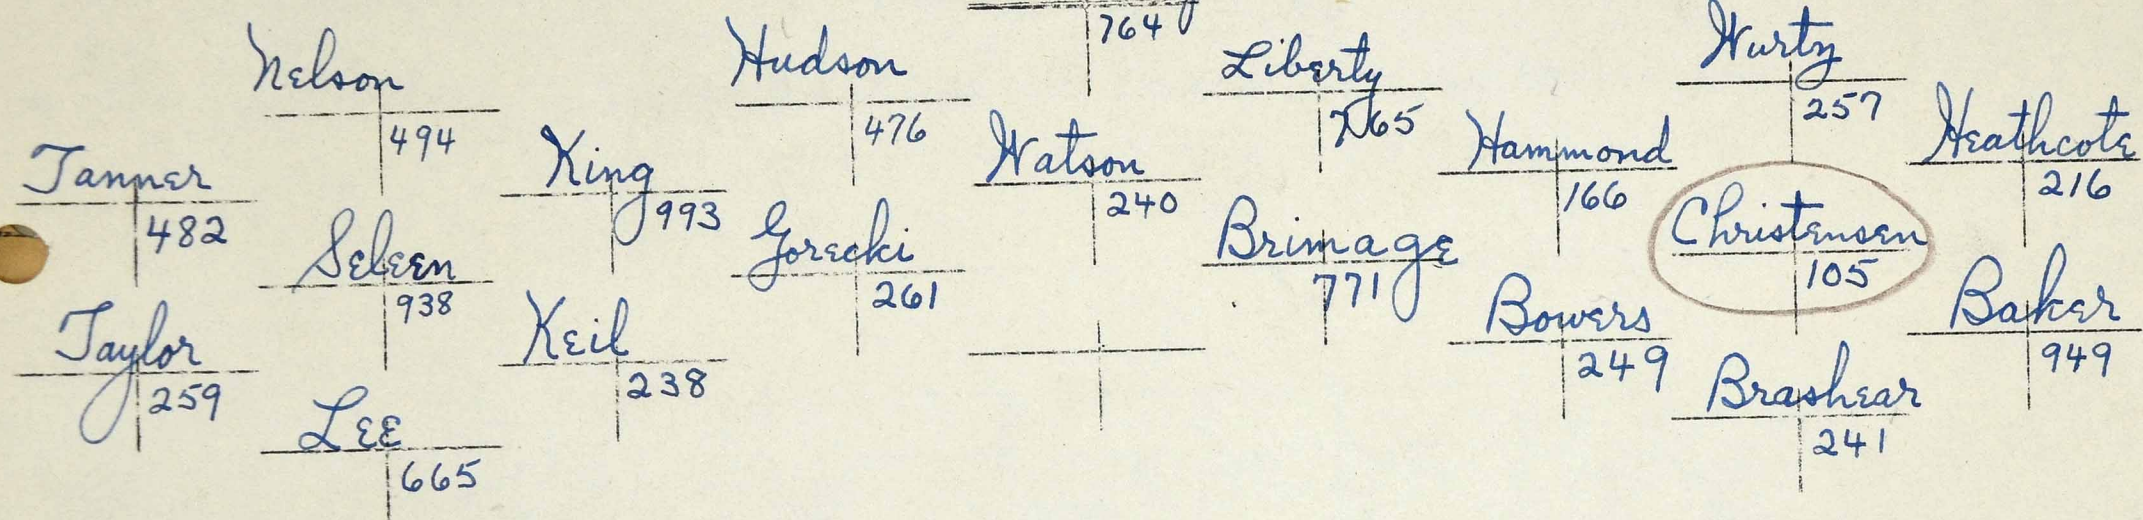 764
Nelson
494
Hudson
476
Liberty
765
Wurtz
257
Tanner
482
King
993
Watson
240
Hammond
166
Heathcote
216
Seleen
938
Gorecki
261
Brimage
771
Christensen
105
Taylor
259
Keil
238
Bowers
249
Baker
949
Lee
665
Brashear
241